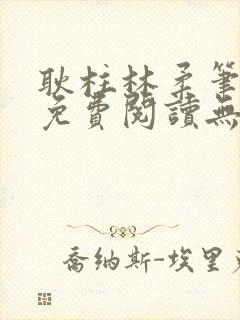 耿柱林柔筆
免費閱讀無
喬納斯-埃里